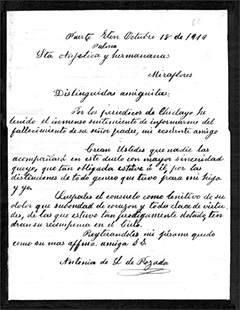 Puerto Eten Octubre 18 de 1919
Srta Angélica y hermanana
Miraflores
Distinguidas amiguitas:
Por los periódicos de Chiclayo he
tenido el inmenso sentimiento de informarme del
fallecimiento de su señor padre, mi excelente amigo
Crean Ustedes que nadie las
acompañará en este duelo con mayor sinceridad
que yo, que tan obligada estuve á él por las
distinciones de todo género que tuvo para mi hija
y yo.
Quépales el consuelo como lenitivo de su
dolor que su bondad de corazon y toda clase de virtu-
des, de las que estuvo tan prodigamente dotado, ten-
dran su recompensa en el Cielo.
Reyterandoles mi pésame quedo
como su mas affma. amiga S. S.
Antonia de L. de Pozada